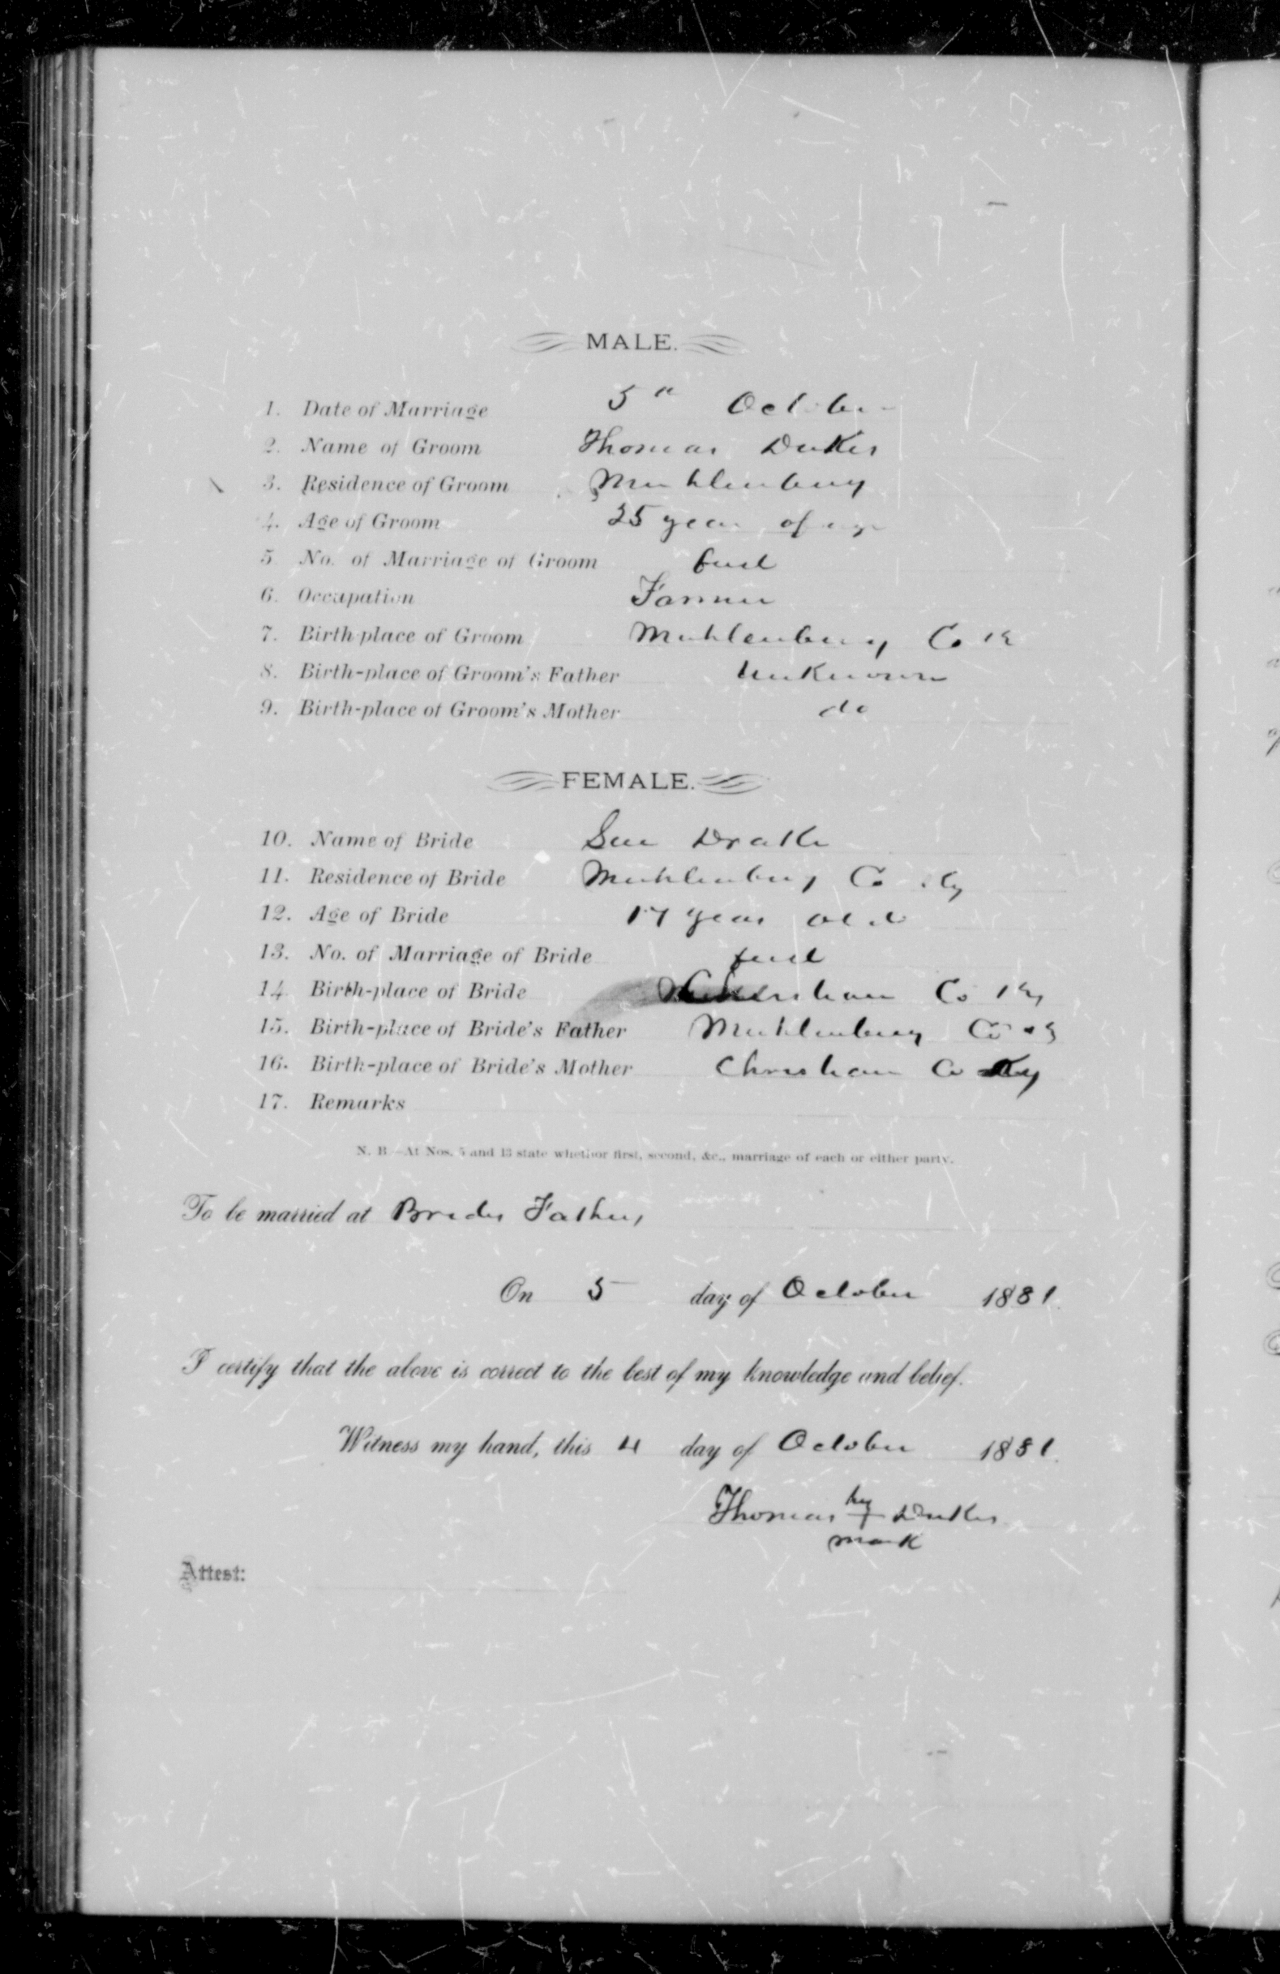 MALE.
1. Date of Marriage 5th October
2. Name of Groom Thomas Dukes
3. Residence of Groom Muhlenburg
4. Age of Groom 25 years of age
5. No. of Marriage of Groom first
6. Occupation Farmer
7. Birth-place of Groom Muhlenburg Co K
8. Birth-place of Groom's Father Unknown
9. Birth-place of Groom's Mother do
FEMALE.
10. Name of Bride Sue Drake
11. Residence of Bride Muhlenburg Co Ky
12. Age of Bride 17 years old
13. No. of Marriage of Bride first
14. Birth-place of Bride Christian Co Ky
15. Birth-place of Bride's Father Muhlenburg Co Ky
16. Birth-place of Bride's Mother Christian Co Ky
17. Remarks
N. B.—At Nos. 5 and 13 state whether first, second, &c., marriage of each or either party.
To be married at Brides Fathers
On 5 day of October 1881.
I certify that the above is correct to the best of my knowledge and belief.
Witness my hand, this 4 day of October 1881.
Thomas his + Dukes
mark
Attest: